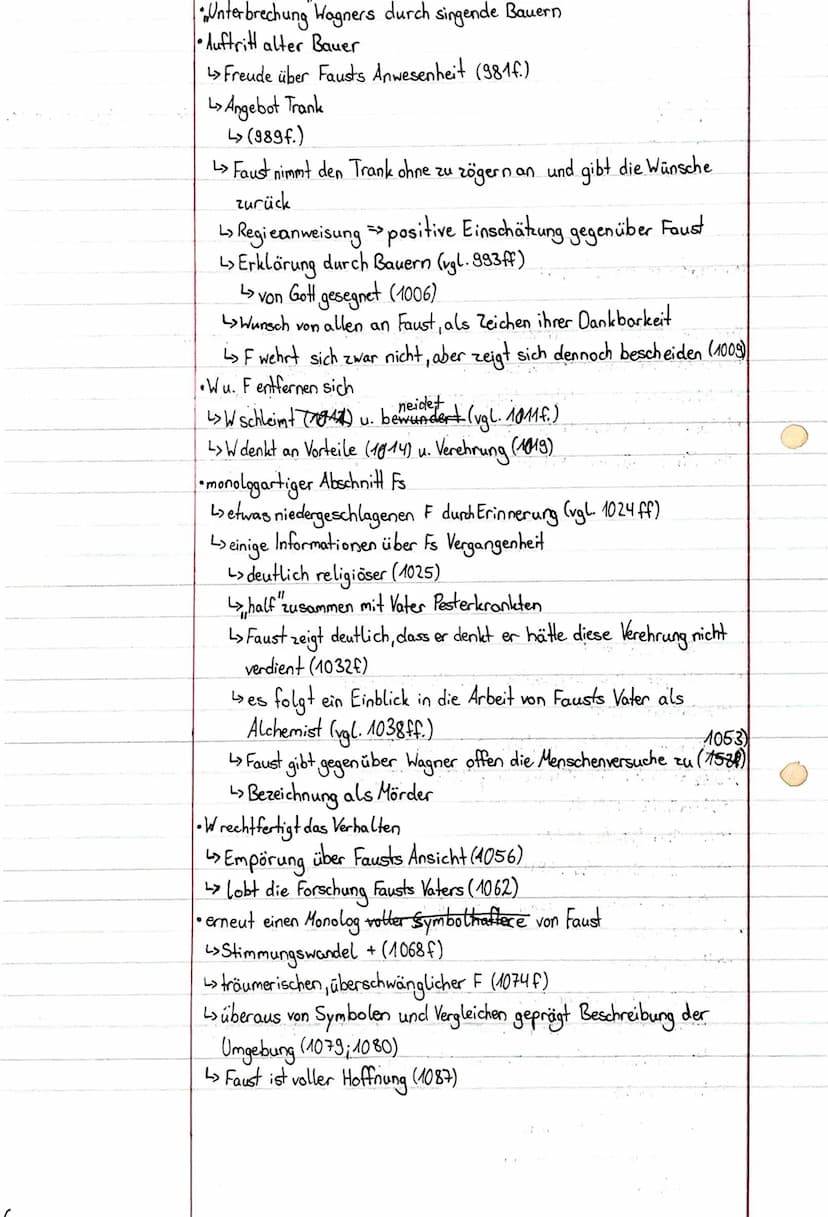 • „Unterbrechung Wagners durch singende Bauern
• Auftritt alter Bauer
↳ Freude über Fausts Anwesenheit (981f.)
↳ Angebot Trank
↳ (989f.)
↳ Faust nimmt den Trank ohne zu zögern an und gibt die Wünsche
zurück
↳ Regieanweisung => positive Einschätzung gegenüber Faust
↳ Erklärung durch Bauern (vgl. 993ff)
↳ von Gott gesegnet (1006)
↳ Wunsch von allen an Faust, als Zeichen ihrer Dankbarkeit
↳ F wehrt sich zwar nicht, aber zeigt sich dennoch bescheiden (1009)
• W u. F entfernen sich
neidet
↳ W schleimt u. bewundert (vgl. 1011f.)
↳ W denkt an Vorteile (1014) u. Verehrung (1019)
• monologartiger Abschnitt Fs
↳ etwas niedergeschlagenen F durch Erinnerung (vgl. 1024 ff)
↳ einige Informationen über Fs Vergangenheit
↳ deutlich religiöser (1025)
↳ „half" zusammen mit Vater Pesterkrankten
↳ Faust zeigt deutlich, dass er denkt er hätte diese Verehrung nicht
verdient (1032f)
↳ es folgt ein Einblick in die Arbeit von Fausts Vater als
Alchemist (vgl. 1038ff.)
1053)
↳ Faust gibt gegenüber Wagner offen die Menschenversuche zu
↳ Bezeichnung als Mörder
• W rechtfertigt das Verhalten
↳ Empörung über Fausts Ansicht (1056)
↳ lobt die Forschung Fausts Vaters (1062)
• erneut einen Monolog voller Symbolhaftere von Faust
↳ Stimmungswandel + (1068f)
↳ träumerischen, überschwänglicher F (1074f)
↳ überaus von Symbolen und Vergleichen geprägt Beschreibung der
Umgebung (1079; 1080)
↳ Faust ist voller Hoffnung (1087)